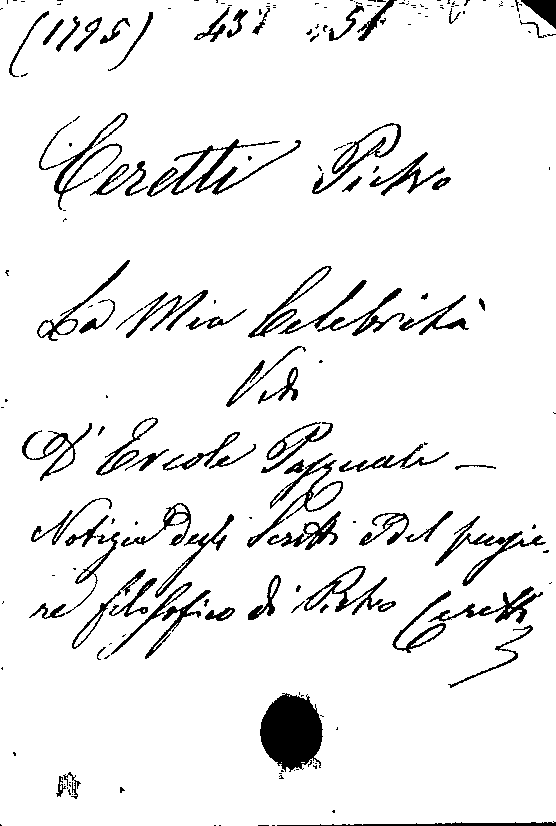 (1795) 431 51
Ceretti Pietro
La Mia Celebrità
Vedi
D'Ercole Pasquale —
Notizia degli Scritti e Del pensie-
re filosofico di Pietro Ceretti